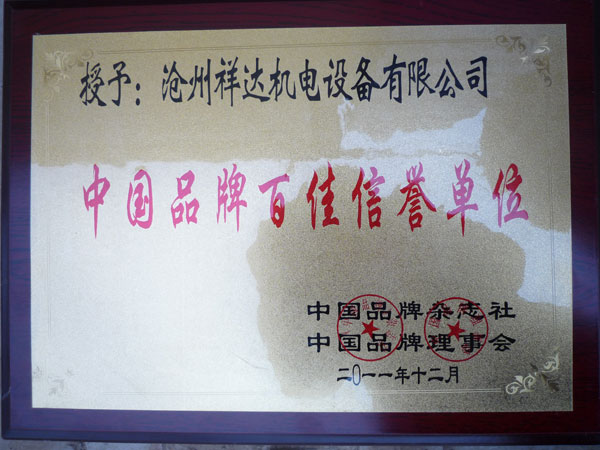 授予：沧州祥达机电设备有限公司
中国品牌百佳信誉单位
中国品牌杂志社
中国品牌理事会
二0一一年十二月